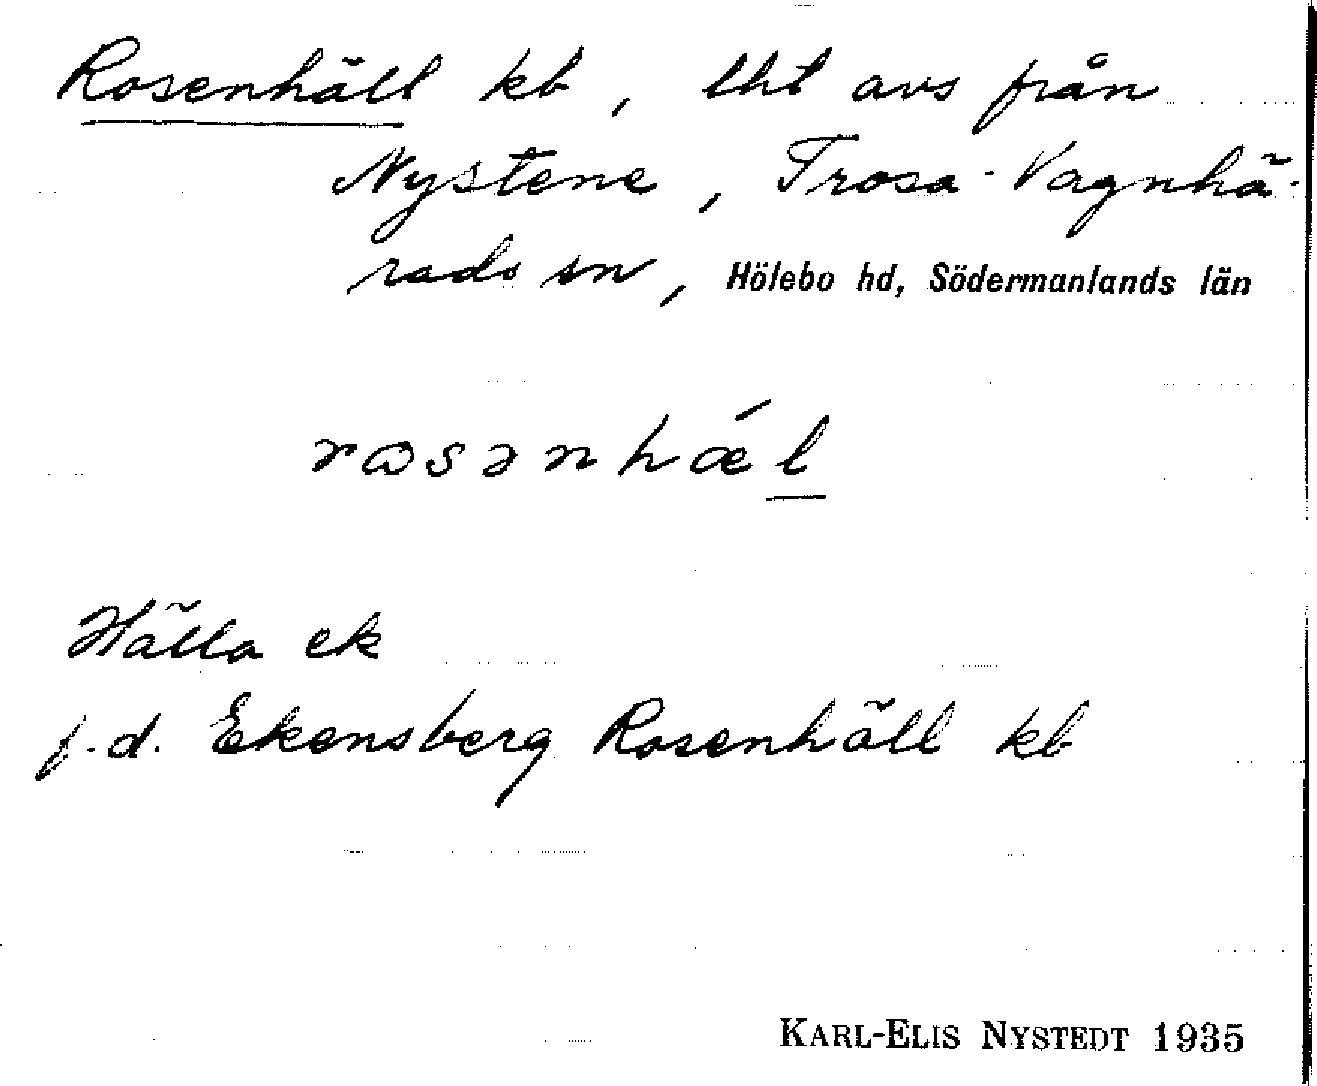 Rosenhäll kb, lht avs från
Nystene, Trosa-Vagnhä-
rads sn, Hölebo hd, Södermanlands län
rɷsənhǽl
Hälla ek
j.d. Ekensberg Rosenhäll kb
KARL-ELIS NYSTEDT 1935